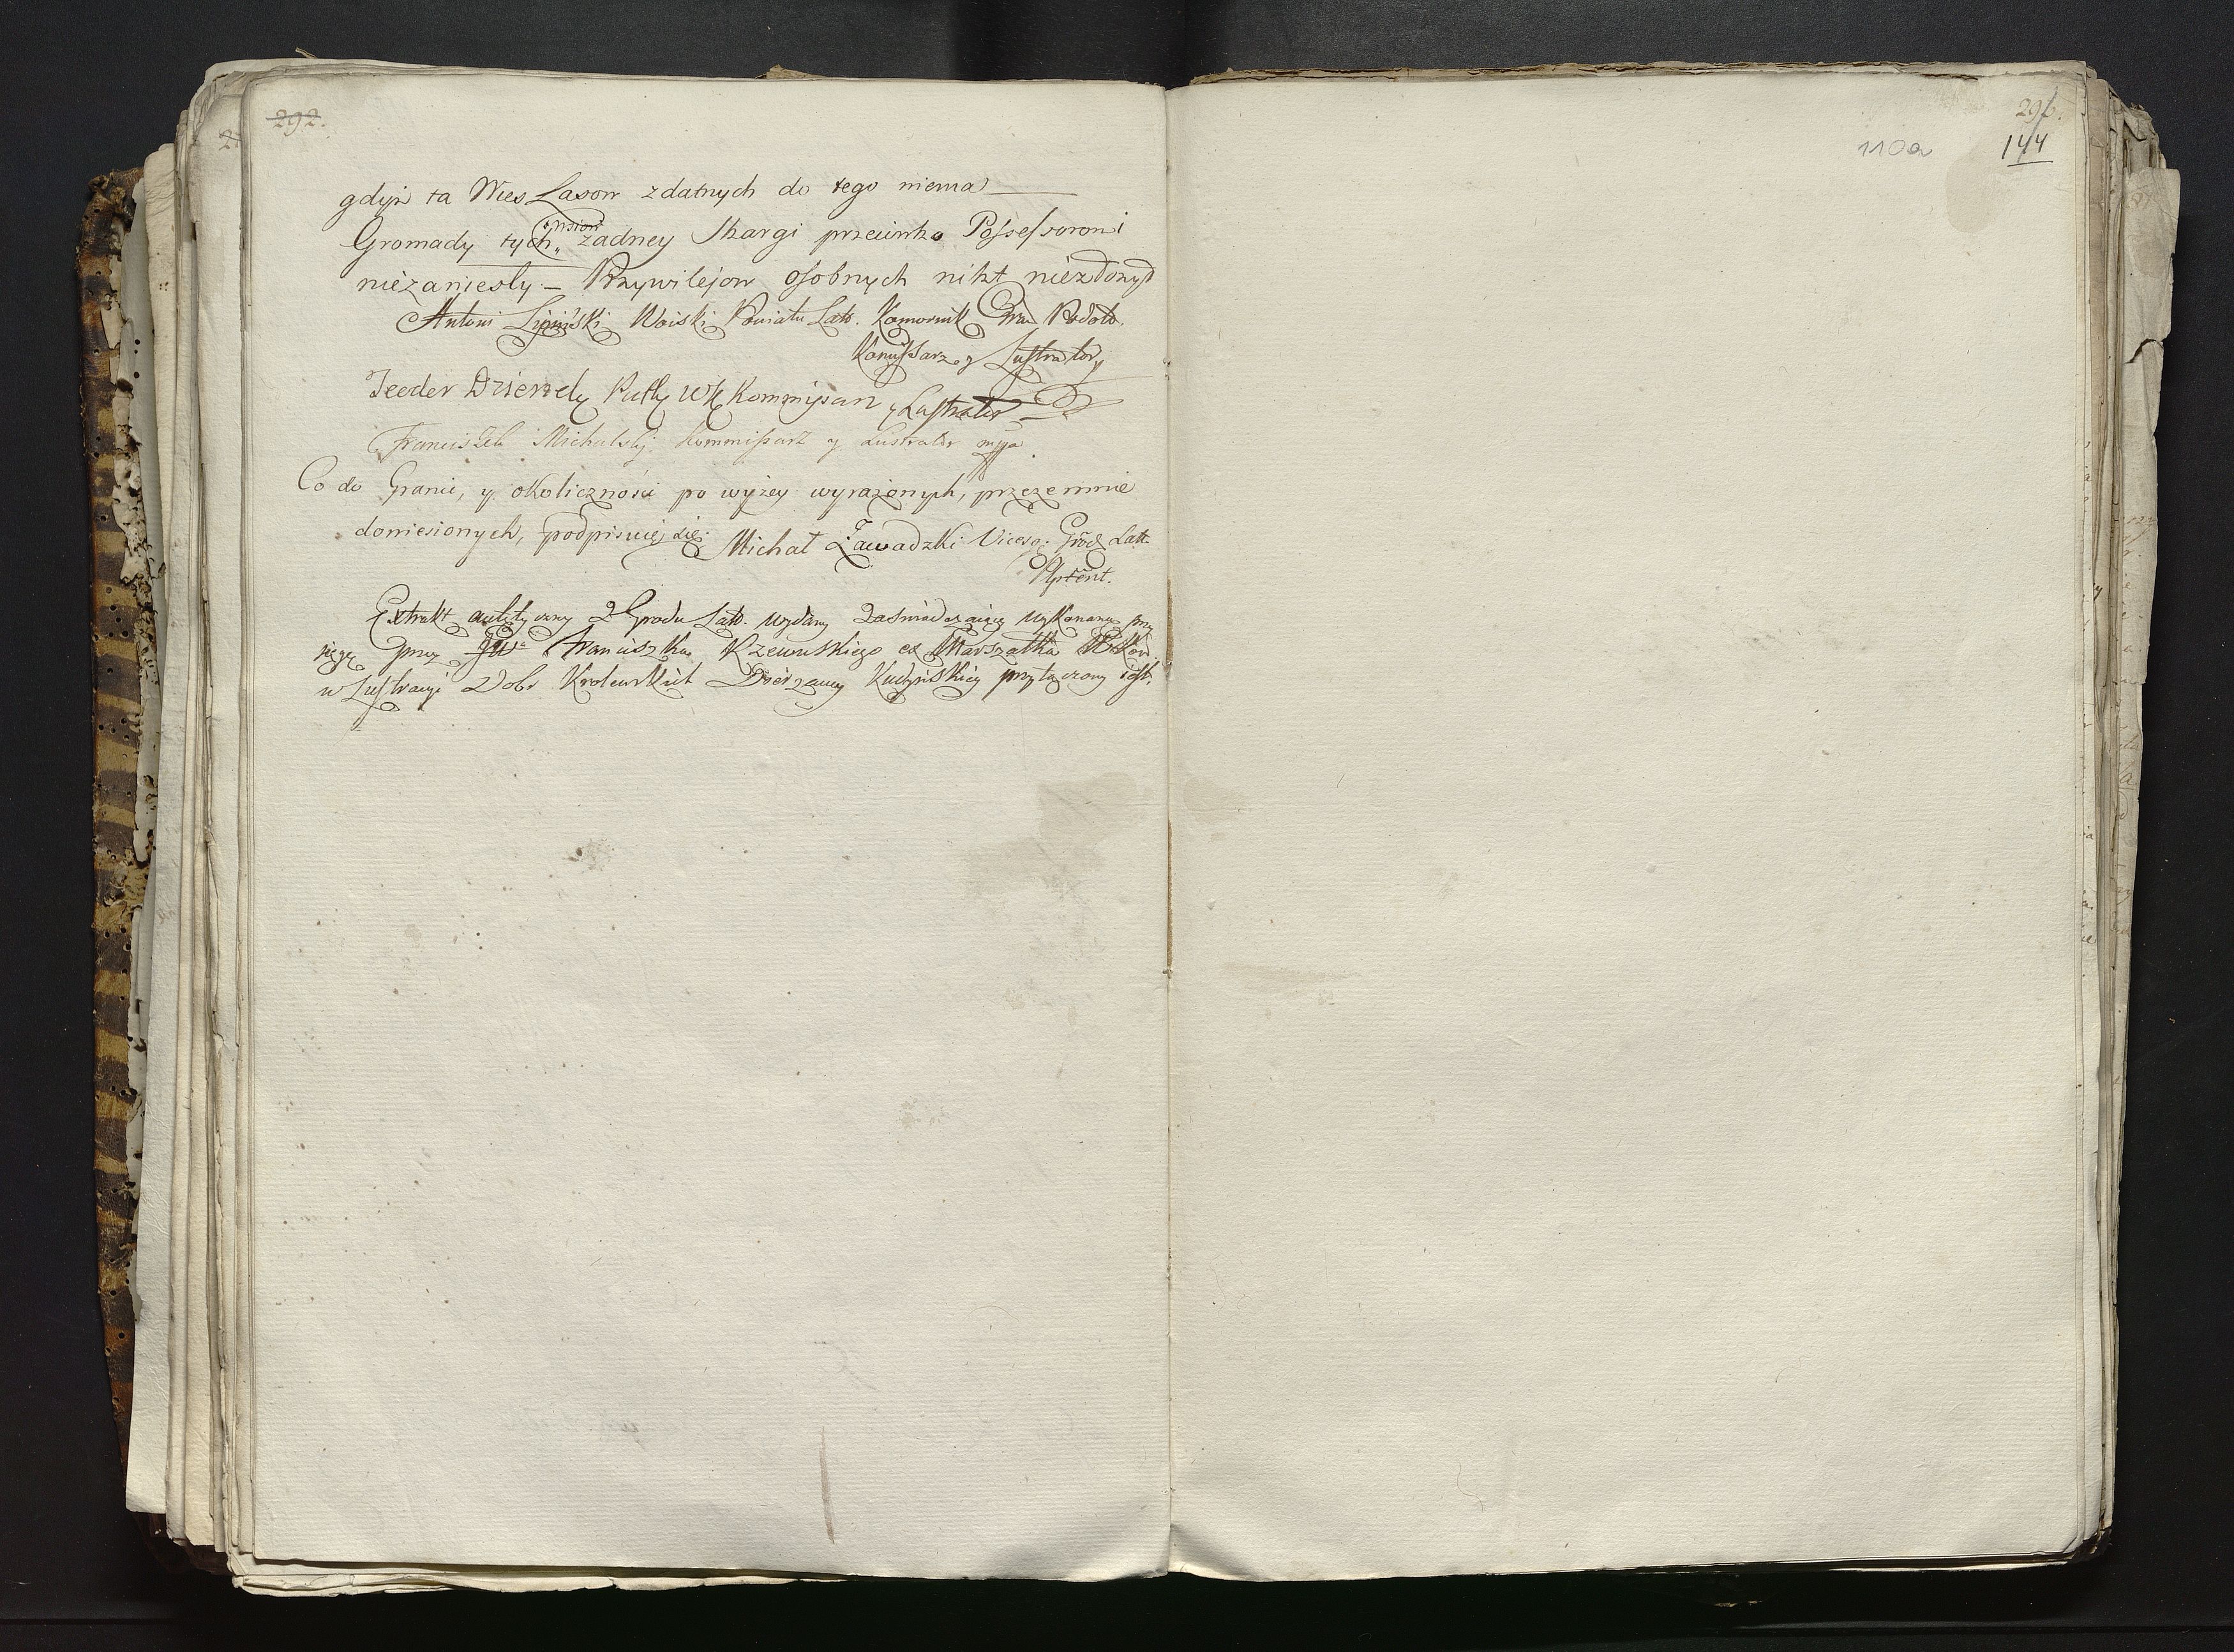 292.
gdyż ta Wies Lasow zdatnych do tego niema
Gromady tych wsiow żadney Skargi przeciwko Possessorowi
niezaniesly — Przywilejow osobnych nikt niezłożył
Antoni Lipiński Woiski Powiatu Lat. Komornik Gra Podolo.
Komissarz y Lustrator
Teodor Dzierzek Kommissarz y Lustrator
Franciszek Michalski Kommissarz y Lustrator mpa
Co do Granic, y okoliczności po wyżey wyrażonych, przezemnie
doniesionych, podpisuię się. Michał Zawadzki Vicesg: Grodz Lat.
Extrakt autętyczny z Grodu Lat. wydany zaświadczaiący wykonaną przy
sięgę przez JW Franciszka Rzewuskiego ex Marszałka
w Lustracyi Dobr Krolewskich Dzierżawy przyłączony iest.
296.
144
110a